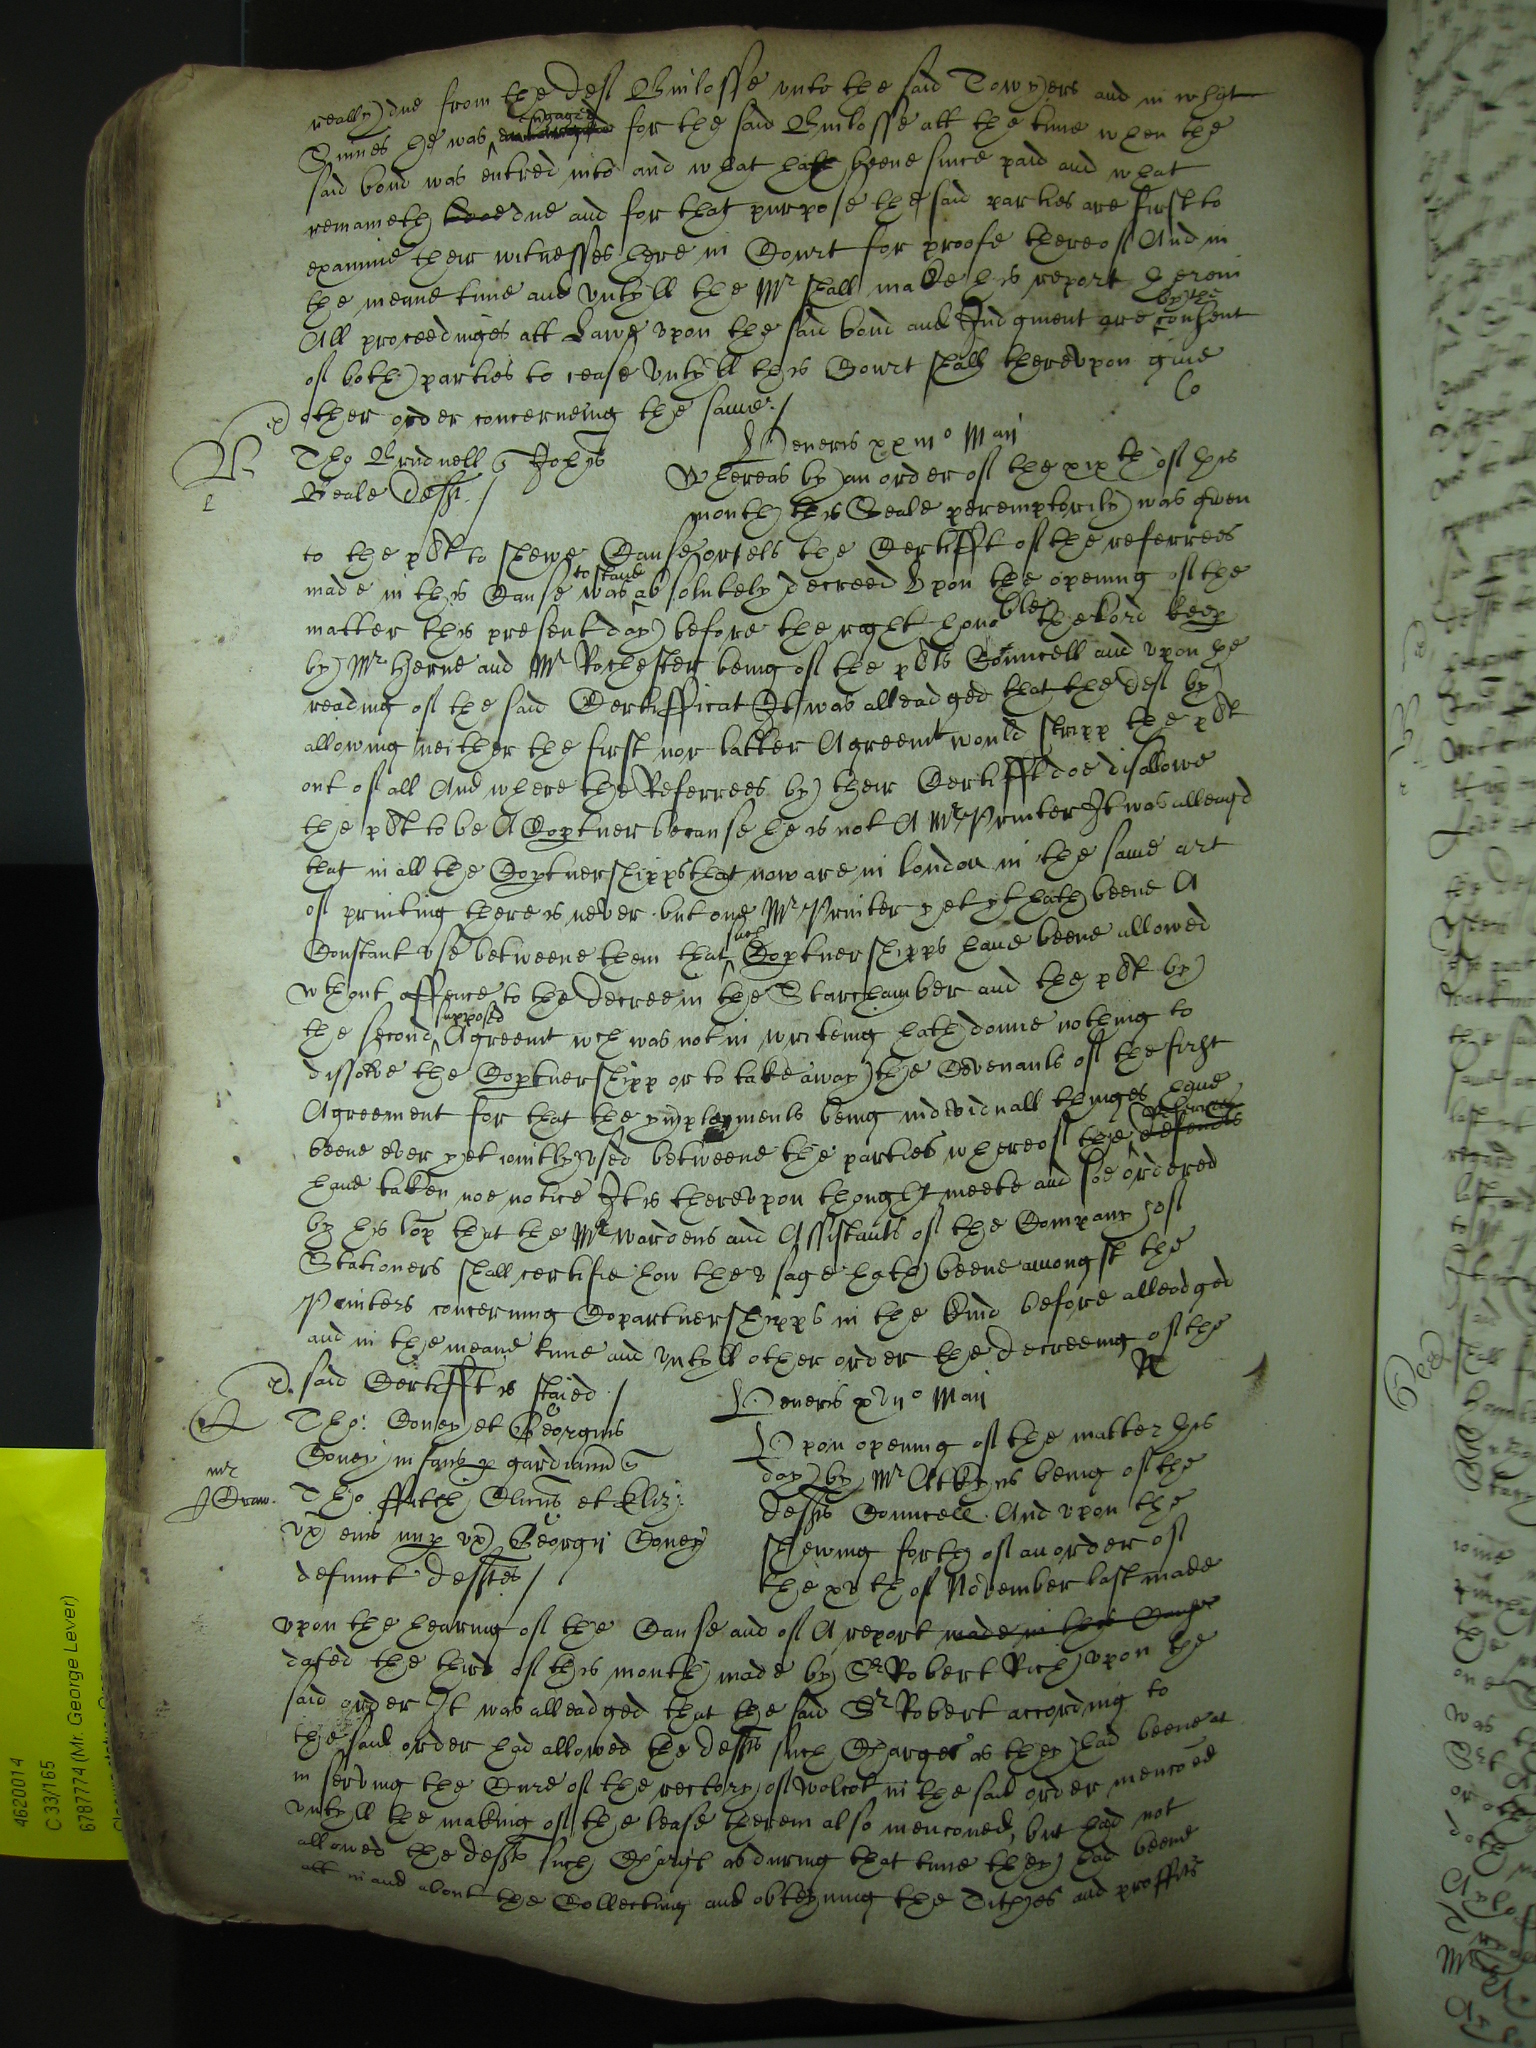 really due from the Deft Builosse unto the said Towyers and in what
Summes he was engaged for the said Builosse att the time when the
said bond was entred into and what hath beene since paid and what
remaineth due and for that purpose the said parties are first to
examine their witnesses here in Court for proofe thereof And in
the meane time and untyll the Mr shall make his report herein
All proceedinges att Lawe upon the said bond and Judgment are by the consent
of both parties to cease untyll this Court shall thereupon give
other order concerneing the same /
Co
Tho Brudnell Johis
Beale deft /
Veneris xxiiio Maij
Whereas by an order of the xixth of this
month this Seale peremptorily was given
to the plt to shewe Cause or els the Certifft of the referrees
made in this Cause was to stand absolutely decreed Upon the opening of the
matter this present day before the right honoble the Lord keep
by Mr Herne and Mr Rochester being of the plts Councell and upon the
reading of the said Certifficat It was alleadged that the deft by
allowing neither the first nor latter Agreemt would stripp the plt
out of all And where the Referrees by their Certifft doe disallowe
the plt to be A Coptner because he is not A Mr Printer It was alleagd
that in all the Coptnershipps that now are in London in the same art
of printing there is never but one Mr Printer yet yt hath beene A
Constant use betweene them that such Coptnershipps have beene allowed
wthout offence to the decree in the Starchamber and the plt by
the second supposed Agreemt wch was not in writeing hath donne nothing to
dissolve the Coptnershipp or to take away the Covenants of the first
Agreement for that the ymployments being individuall thinges have
beene ever yet iointly used betweene the parties whereof the Referrees
have taken noe notice It is thereupon thought meete and soe ordered
by his Lop that the Mr wardens and Assistants of the Company of
Stationers shall certifie how the usage hath beene amongst the
Printers concerning Copartnershipps in the kind before alleadged
and in the meane time and untyll other order the decreeing of the
said Certifft is staied /
Tho: Coney et Georgius
Coney infans p gardianu
Tho ffitch Clicus et Eliz:
ux eius nup ux Georgij Coney
defunct deftes /
mr
Veneris xviio Maij
Upon opening of the matter this
day by Mr Atkyns being of the
defts Councell And upon the
shewing forth of an order of
the xvth of November last made
upon the hearing of the Cause and of A report made in that Cause
dated the third of this month made by Sr Robert Rich upon the
said order It was alleadged that the said Sr Robert according to
the said order had allowed the defts such Charges as they had beene at
in serving the Cure of the rectory of Wolcot in the said order menconed
untyll the making of the lease therein also menconed, but had not
allowed the defts such Charge as during that time they had beene
att in and about the Collecting and obteyning the Tithes and proffitts
4620014
C 33/165
6787774 (Mr. George Lever)